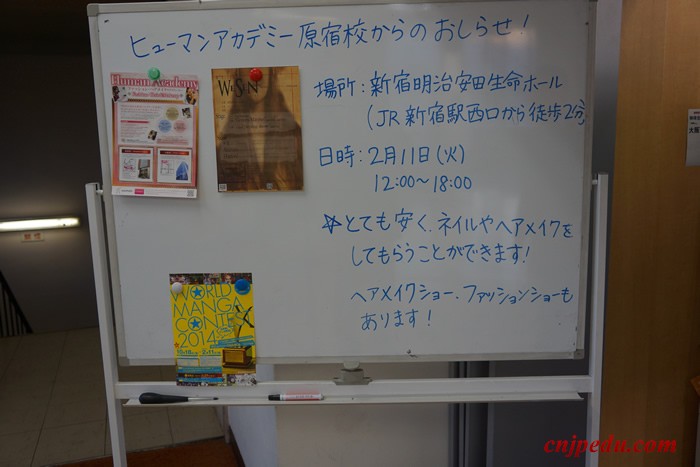 ヒューマンアカデミー原宿校からのおしらせ！
Human Academy
WISIN
場所：新宿明治安田生命ホール
（JR新宿駅西口から徒歩2分）
日時：2月11日（火）
12:00～18:00
☆とても安く、ネイルやヘアメイクを
してもらうことができます！
ヘアメイクショー、ファッションショーも
あります！
WORLD
MANGA
CONTE
2014
cnjpedu.com